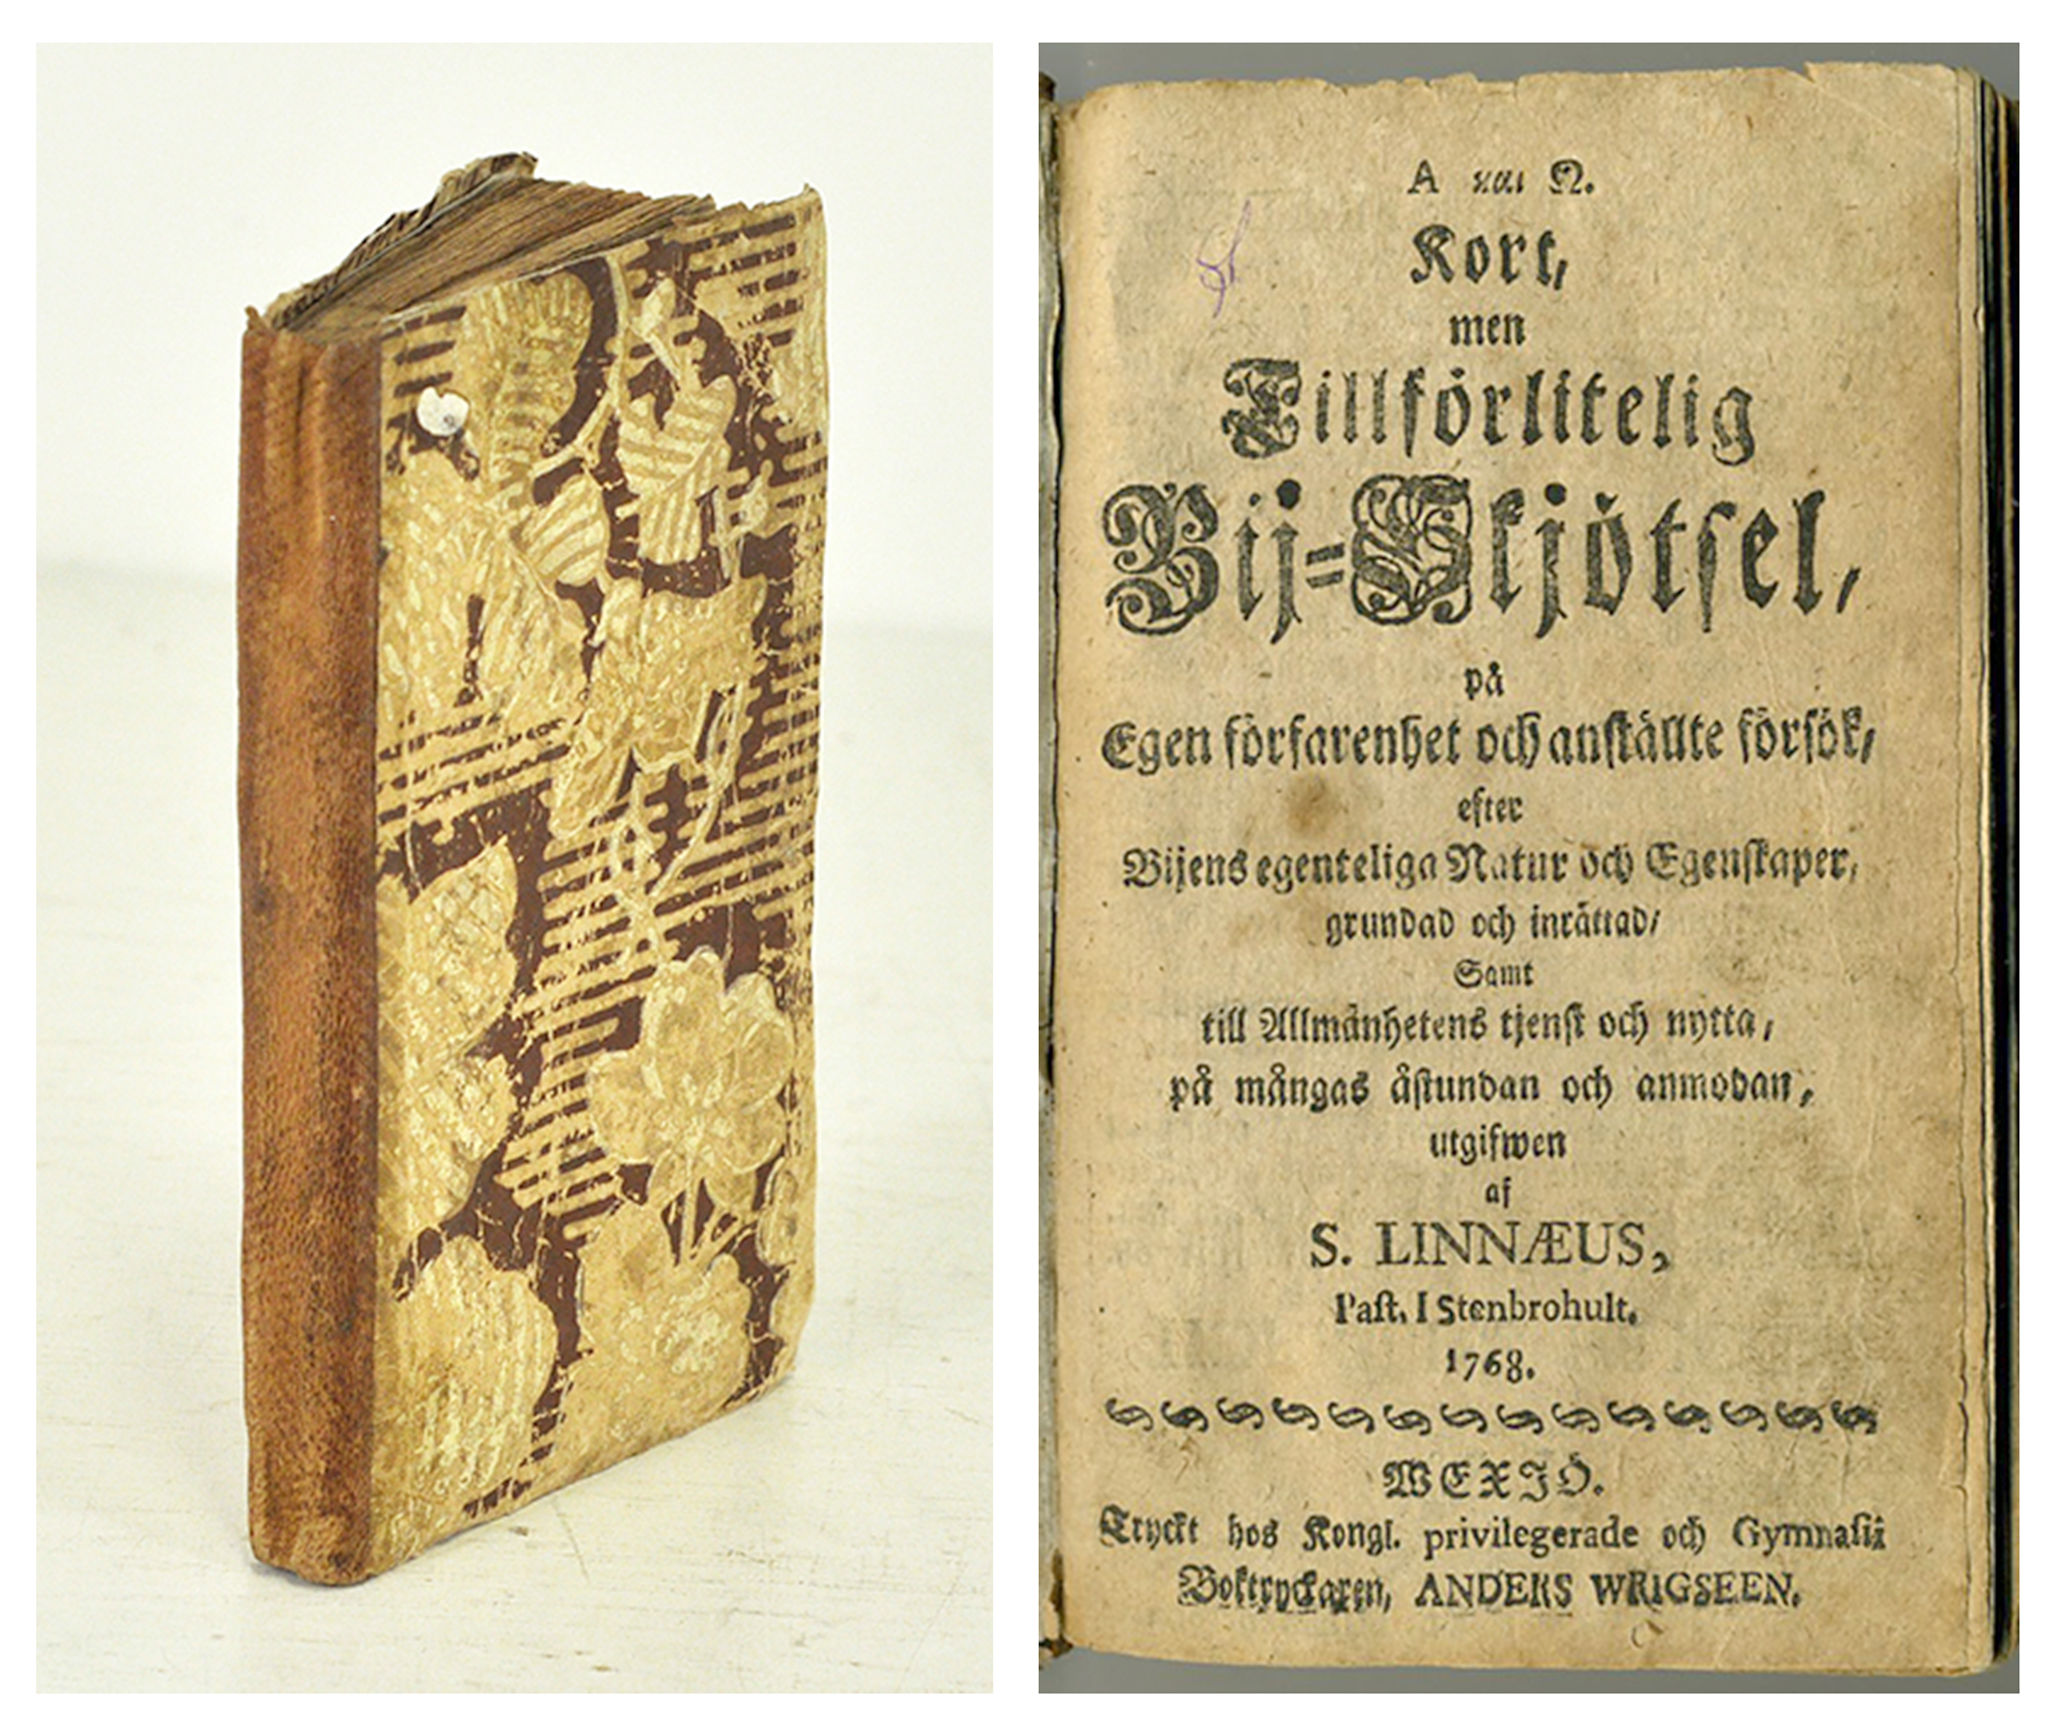 A και Ω.
Kort,
men
Tillförlitelig
Bij-Skjötsel,
på
Egen förfarenhet och anställte försök,
efter
Bijens egenteliga Natur och Egenskaper,
grundad och inrättad,
Samt
till Allmänhetens tjenst och nytta,
på mångas åstundan och anmodan,
utgifwen
af
S. LINNÆUS,
Past. I Stenbrohult.
1768.
WEXJÖ.
Tryckt hos Kongl. privilegerade och Gymnasii
Boktryckaren, ANDERS WRIGSEEN.